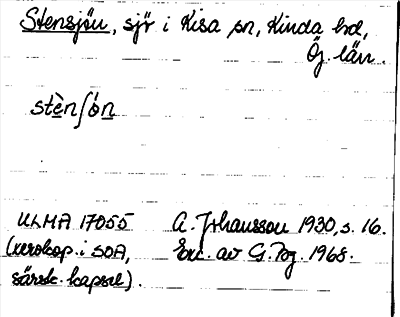 Stensjön, sjö i Kisa sn, Kinda hd,
Ög. län.
stènʃón
ULMA 17055 A. Johansson 1930, s. 16.
(xerokop. i SOA, Exc. av G. Fog. 1968.
särsk. kapsel).